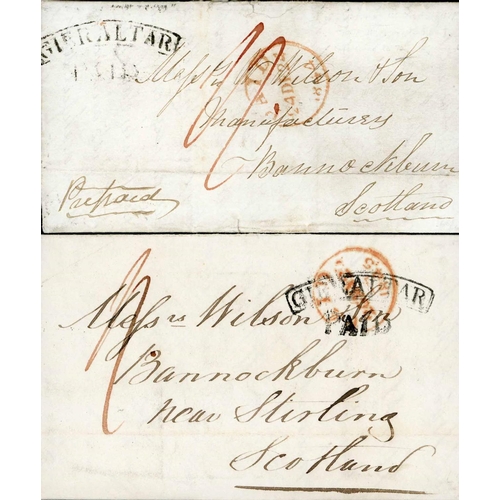 GIBRALTAR
PAID
Messrs W Wilson & Son
Manufacturers
Bannockburn
Prepaid
Scotland
GIBRALTAR
PAID
Messrs Wilson & Son
Bannockburn
near Stirling
Scotland